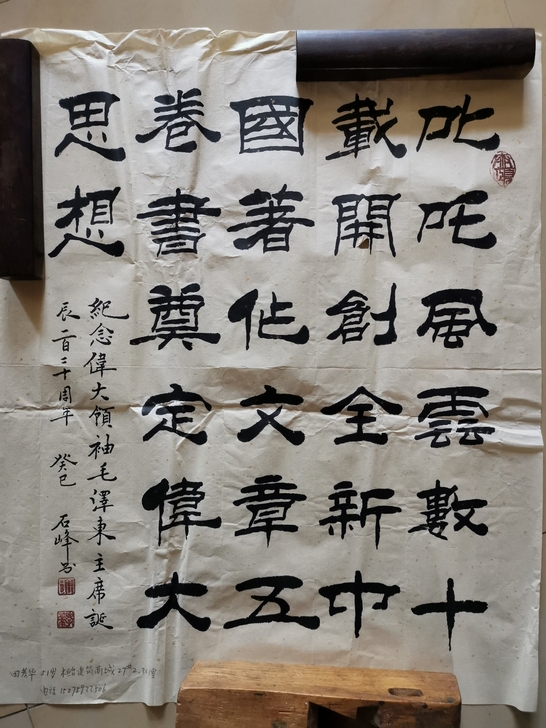 叱吒風雲數十
載開創全新中
國著作文章五
卷書奠定偉大
思想
紀念偉大領袖毛澤東主席誕
辰一百二十周年 癸巳 石峰书